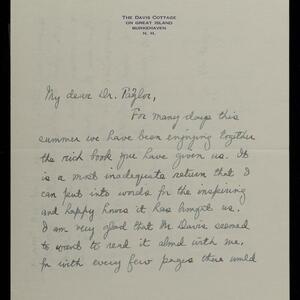 THE DAVIS COTTAGE
ON GREAT ISLAND
BURKEHAVEN
N. H.
My dear Dr. Paylor,
For many days this
summer we have been enjoying together
the rich book you have given us. It
is a most inadequate return that I
can put into words for the inspiring
and happy hours it has brought us.
I am very glad that Mr Davis seemed
to want to read it aloud with me,
for with every few pages there would